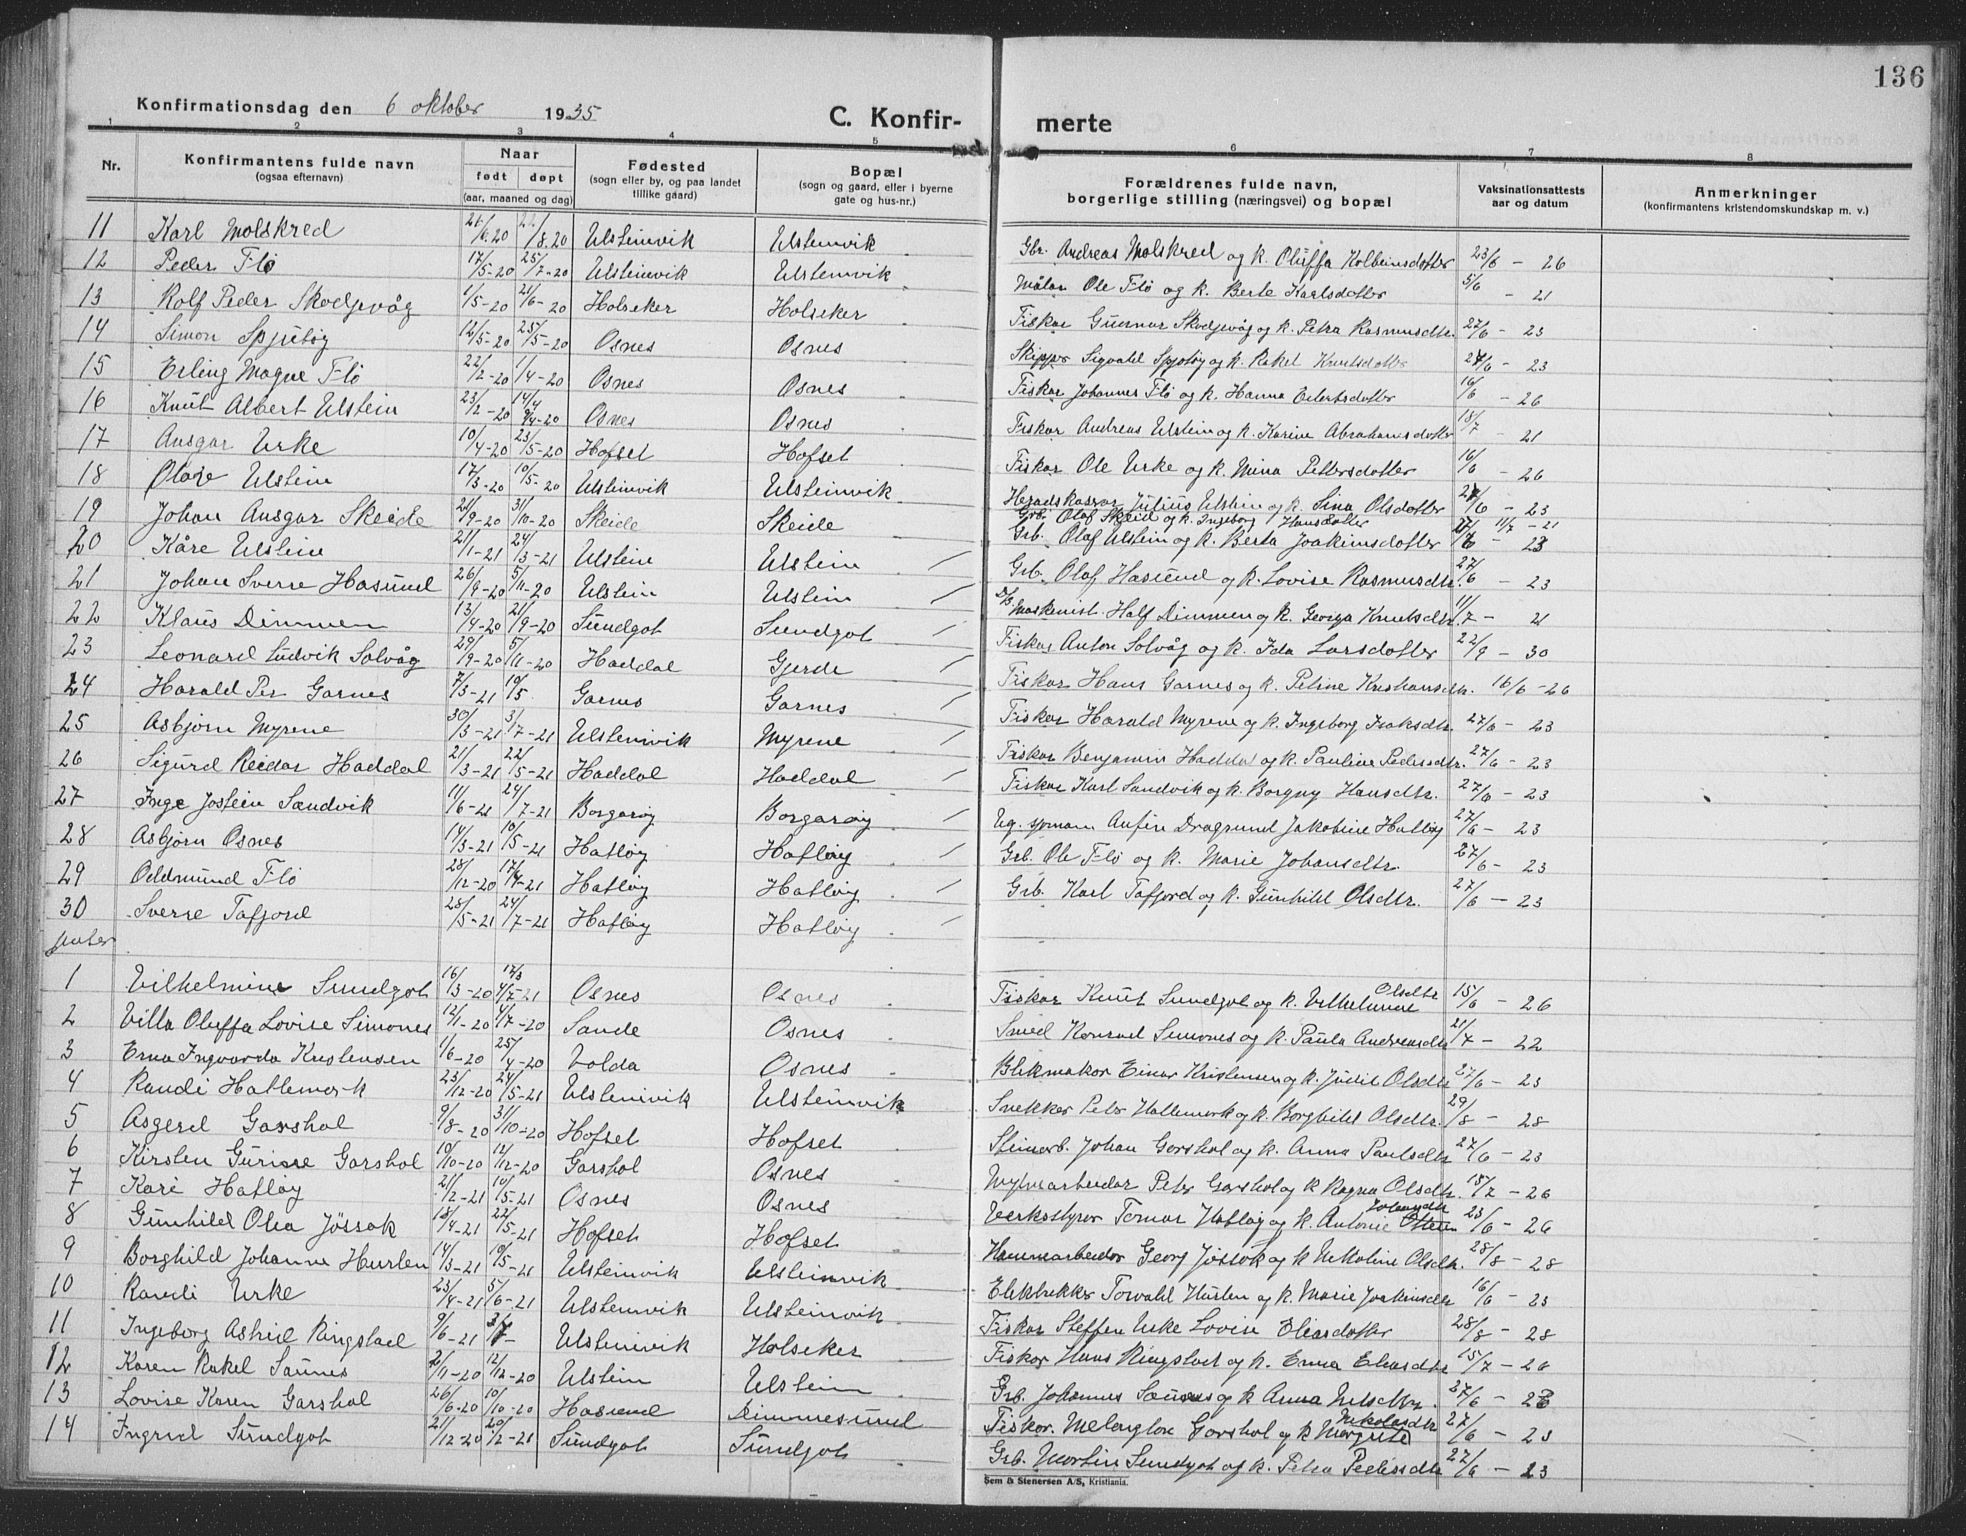 136
Konfirmationsdag den 6 oktober 1935 C. Konfirmerte
1 2 3 4 5 6 7 8
Nr. Konfirmantens fulde navn (ogsaa efternavn) Naar født døpt (aar, maaned og dag) Fødested (sogn eller by, og paa landet tillike gaard) Bopæl (sogn og gaard, eller i byerne gate og hus-nr.) Forældrenes fulde navn, borgerlige stilling (næringsvei) og bopæl Vaksinationsattests aar og datum Anmerkninger (konfirmantens kristendomskundskap m. v.)
11 Karl Molskred 21/6.20 22/8.20 Ulsteinvik Ulsteinvik Gbr. Andreas Molskred og k. Oluffa Kolbeinsdotter 23/6 - 26
12 Peder Flø 17/5-20 25/7-20 Ulsteinvik Ulsteinvik Målar Ole Flø og k. Berte Karlsdotter 5/6 - 21
13 Rolf Peder Skodjevåg 1/5-20 21/6-20 Holseker Holseker Fiskar Gunnar Skodjevåg og k. Petra Rasmusdtr. 27/6 - 23
14 Simon Spjutøy 12/5-20 25/5-20 Osnes Osnes Skipper Sigvald Spjutøy og k. Rakel Knutsdotter 27/6 - 23
15 Erling Magne Flø 22/2-20 1/4-20 Osnes Osnes Fiskar Johannes Flø og k. Hanna Eilertsdotter 16/6 - 26
16 Knut Albert Ulstein 23/12-20 14/4 9/4-20 Osnes Osnes Fiskar Andreas Ulstein og k. Karine Abrahamsdotter 18/7 - 21
17 Ansgar Urke 10/4-20 23/5-20 Hofset Hofset Fiskar Ole Urke og k. Mina Pettersdotter 16/6 - 26
18 Olave Ulstein 17/3-20 10/5-20 Ulsteinvik Ulsteinvik Heradskasserar Julius Ulstein og k. Sina Olsdotter 27/6 - 23
19 Johan Ansgar Skeide 21/9-20 31/10-20 Skeide Skeide Grb. Olaf Skeid og k. Ingeborg Hansdotter 11/7 - 21
20 Kåre Ulstein 21/1-21 24/3-21 Ulstein Ulstein Grb. Olaf Ulstein og k. Berta Joakimsdotter 27/6 - 23
21 Johan Sverre Hasund 26/9-20 5/11-20 Ulstein Ulstein Grb. Olaf Hasund og k. Lovise Rasmusdtr. 27/6 - 23
22 Klaus Dimmen 13/4-20 21/9-20 Sundgot Sundgot Maskinist Half Dimmen og k. Georga Knutsdtr. 11/7 - 21
23 Leonard Ludvik Solvåg 29/9-20 5/11-20 Haddal Gjerde Fiskar Anton Solvåg og k. Ida Larsdotter 22/9 - 30
24 Harald Per Garnes 7/3-21 19/5 Garnes Garnes Fiskar Hans Garnes og k. Petine Kristiansdtr. 16/6 - 26
25 Asbjørn Myrene 30/3-21 3/7-21 Ulsteinvik Myrene Fiskar Harald Myrene og k. Ingeborg Isaksdtr. 27/6 - 23
26 Sigurd Reidar Haddal 21/3-21 22/5-21 Haddal Haddal Fiskar Benjamin Haddal og k. Pauline Pedersdtr. 27/6 - 23
27 Inge Jostein Sandvik 11/6-21 24/7-21 Borgarøy Borgarøy Fiskar Karl Sandvik og k. Borgny Hansdtr. 27/6 - 23
28 Asbjørn Osnes 14/3-21 10/5-21 Hatløy Hatløy Ug. Anfin Dragsund Jakobine Hatløy 27/6 - 23
29 Oddmund Flø 28/12-20 17/4-21 Hatløy Hatløy Grb. Ole Flø og k. Marie Johansdtr. 27/6 - 23
30 Sverre Tafjord 28/5-21 24/7-21 Hatløy Hatløy Grb. Karl Tafjord og k. Gunhild Olsdtr. 27/6 - 23
jenter
1 Vilhelmine Sundgot 16/3-20 17/3 4/7-21 Osnes Osnes Fiskar Knut Sundgot og k. Vilhelmine Olsdtr 15/6 - 26
2 Villa Oluffa Lovise Simones 12/11-20 4/7-20 Sande Osnes Smed Konrad Simones og k. Paula Andreasdtr 21/7 - 22
3 Erna Ingvarda Kristensen 1/6-20 25/4-20 Volda Osnes Blikmakar Einar Kristensen og k. Judit Olsdtr 27/6 - 23
4 Randi Hatlemark 23/12-20 24/5-21 Ulsteinvik Ulsteinvik Snekker Peter Hatlemark og k. Borghild Olsdtr. 29/8 - 28
5 Asgerd Garshol 9/8-20 31/10-20 Hofset Hofset Steinarb. Johan Garshol og k. Anna Paulsdtr 27/6 - 23
6 Kirsten Gurine Garshol 10/10-20 12/12-20 Garshol Osnes Mylnearbeidar Peter Garshol og k Ragna Olsdtr. 15/7 - 26
7 Kari Hatløy 21/2-21 10/5-21 Osnes Osnes Verkstyrer Tomas Hatløy og k. Antonie Johansdtr 23/6 - 26
8 Gunhild Olea Jøssok 18/4-21 22/5-21 Hofset Hofset Hammararbeidar Georg Jøssok og k Nikoline Olsdtr. 28/8 - 28
9 Borghild Johanne Hurlen 14/3-21 10/5-21 Ulsteinvik Ulsteinvik Elektrikker Torvald Hurlen og k. Marie Joakimsdtr 16/6 - 23
10 Randi Urke 23/4-21 5/6-21 Ulsteinvik Ulsteinvik Fiskar Steffen Urke Lovise Eliasdotter 28/8 - 28
11 Ingeborg Astrid Ringstad 9/6-21 Ulsteinvik Holseker Fiskar Hans Ringstad og k. Emma Eliasdtr 15/7 - 26
12 Karen Rakel Saunes 2/11-20 12/12-20 Ulstein Ulstein Grb. Johannes Saunes og k Anna Nilsdtr 27/6 - 23
13 Lovise Karen Garshol 26/6-20 10/10-20 Hasund Dimmesund Fiskar. Melanglon Garshol og k Margrete Nikolasdtr 27/6 - 23
14 Ingrid Sundgot 21/12-20 20/2-21 Sundgot Sundgot Grb. Martin Sundgot og k. Petra Pedersdtr 27/6 - 23
Sem & Stenersen A/S, Kristiania.